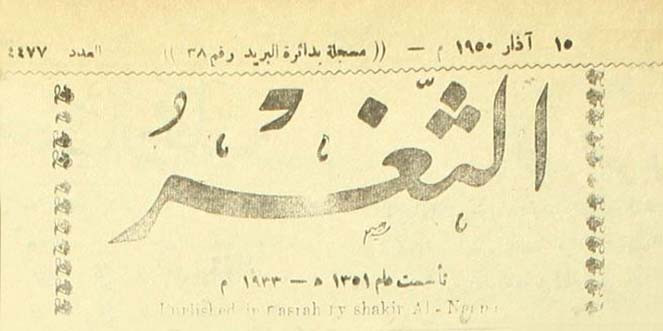 ١٥ آذار ١٩٥٠ م — (( مسجلة بدائرة البريد رقم ٣٨ )) العدد ٤٤٧٧
الثَّغْرُ
تأسست عام ١٣٥١ ه — ١٩٣٣ م
in Basrah by shakir Al-